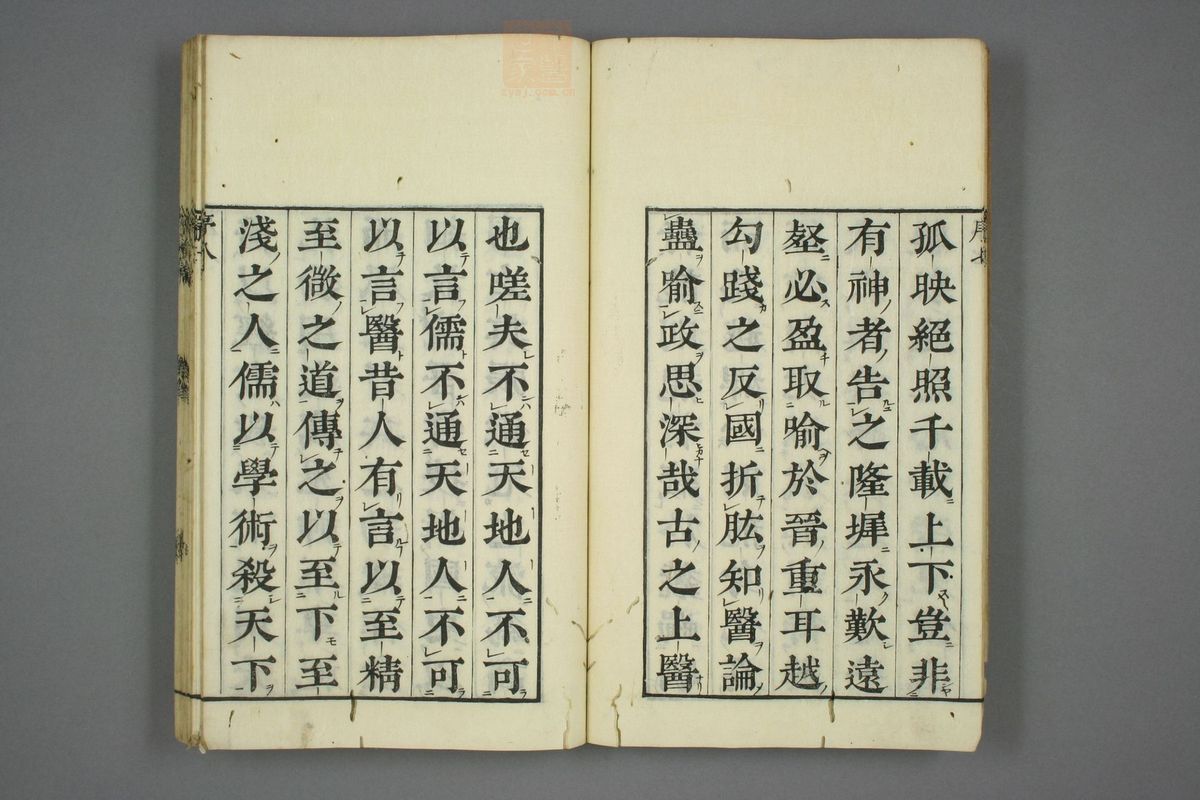 孤映絕照千載上下豈非
有神者告之隆墀永歎遠
壑必盈取喻於晉重耳越
勾踐之反國折肱知醫論
蠱喻政思深哉古之上醫
也嗟夫不通天地人不可
以言儒不通天地人不可
以言醫昔人有言以至精
至微之道傳之以至下至
淺之人儒以學術殺天下